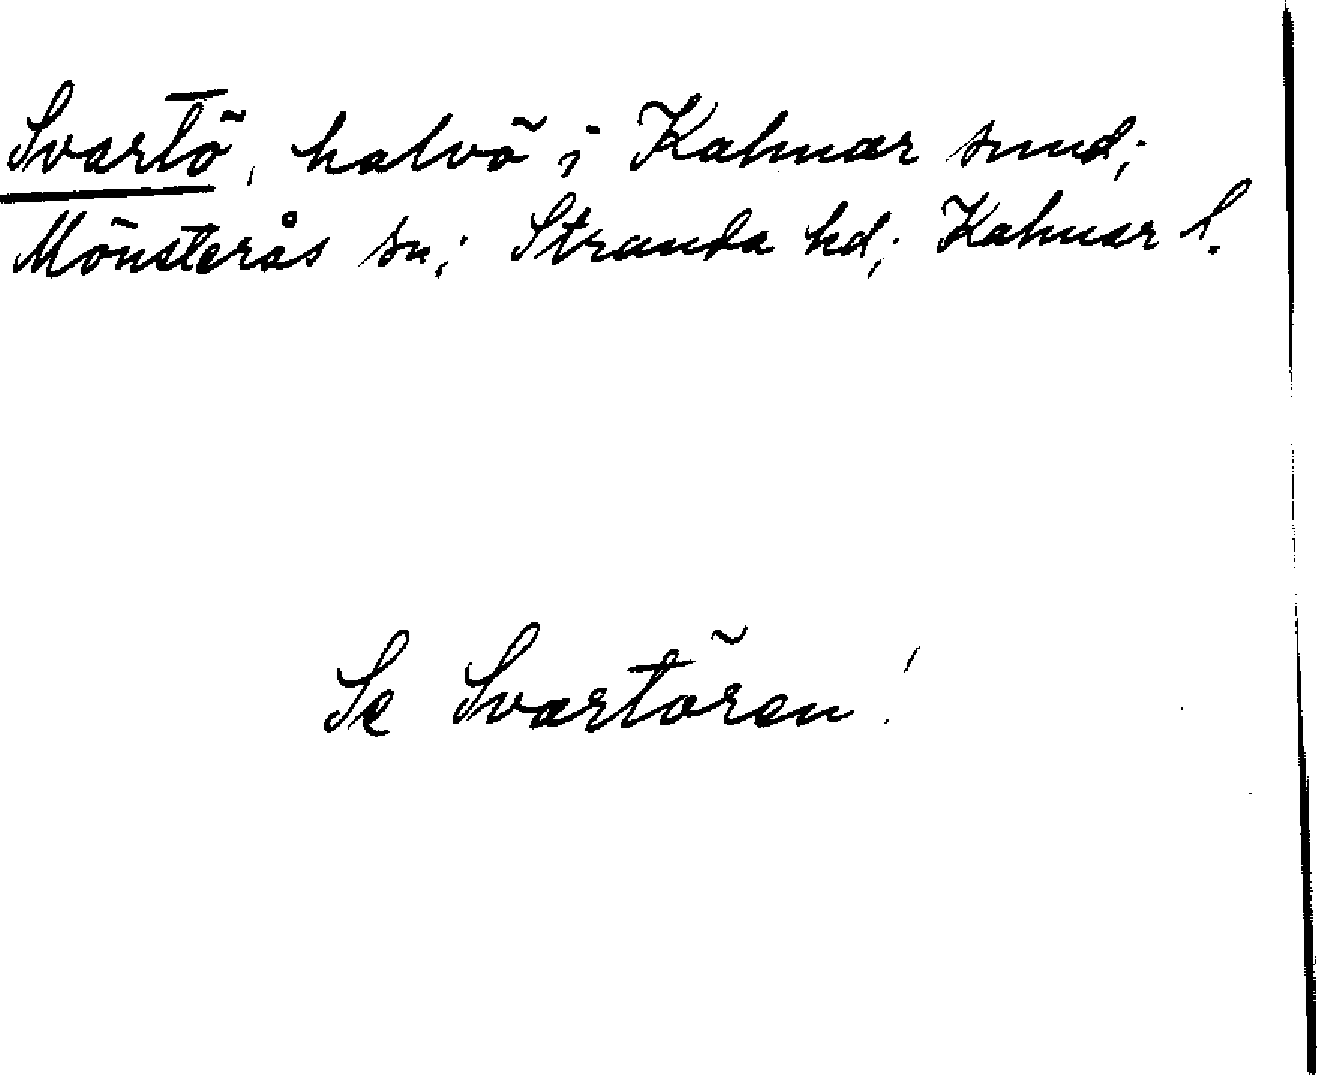 Svartö, halvö i Kalmar sund;
Mönsterås sn; Stranda hd; Kalmar l.
Se Svartören!